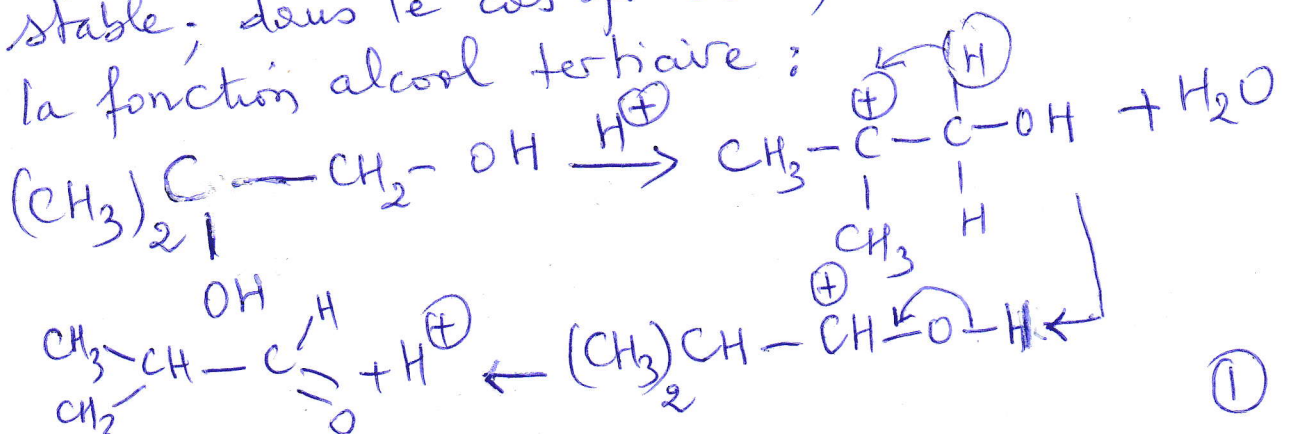 stable; dans le cas
la fonction alcool tertiaire :
(CH3)2 C — CH2 - OH H⊕ → CH3 - C⊕ - C - OH + H2O
H
OH CH3 H
CH3 CH — C H O + H⊕ ← (CH3)2 CH — CH⊕ - O - H ←
CH3
①